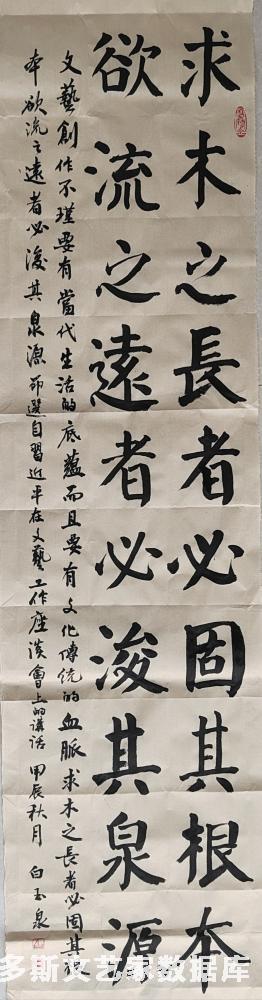 求木之長者必固其根本
欲流之遠者必浚其泉源
文藝創作不僅要有當代生活的底蘊而且要有文化傳統的血脈求木之長者必固其根
本欲流之遠者必浚其泉源節選自習近平在文藝工作座談會上的講話 甲辰秋月 白玉泉
多斯文艺家数据库